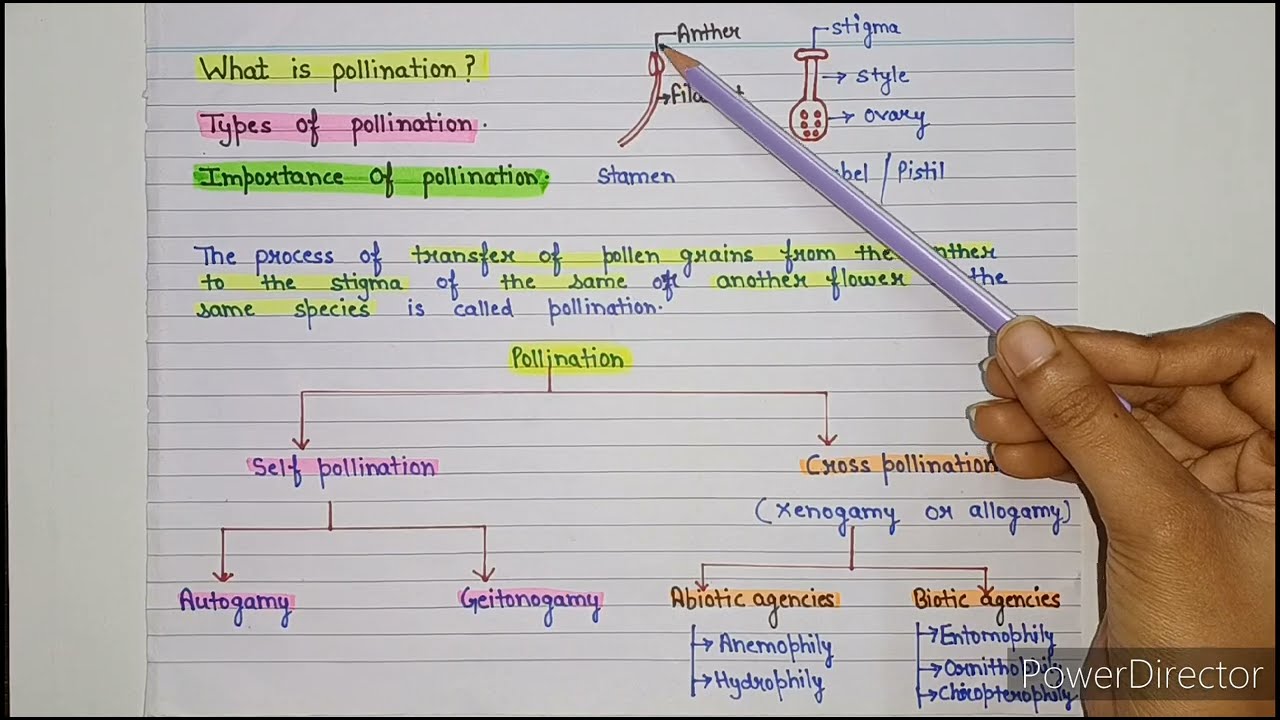 Anther
stigma
What is pollination?
style
ovary
Types of pollination.
Importance of pollination.
Stamen
Pistil
The process of transfer of pollen grains from the
to the stigma of the same or another flower the
same species is called pollination.
Pollination
Self pollination
Cross pollination
(xenogamy or allogamy)
Autogamy
Geitonogamy
Abiotic agencies
Biotic agencies
Anemophily
Entomophily
Hydrophily
Ornithophily
Chiropterophily
PowerDirector